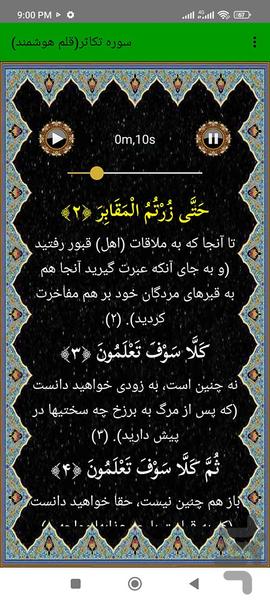 9:00 PM
67
سوره تکاثر(قلم هوشمند)
0m,10s
حَتَّى زُرْتُمُ الْمَقَابِرَ ﴿۲﴾
تا آنجا که به ملاقات (اهل) قبور رفتید
(و به جای آنکه عبرت گیرید آنجا هم
به قبرهای مردگان خود بر هم مفاخرت
کردید). (۲)
كَلَّا سَوْفَ تَعْلَمُونَ ﴿۳﴾
نه چنین است، به زودی خواهید دانست
(که پس از مرگ به برزخ چه سختیها در
پیش دارید). (۳)
ثُمَّ كَلَّا سَوْفَ تَعْلَمُونَ ﴿۴﴾
باز هم چنین نیست، حقأ خواهید دانست